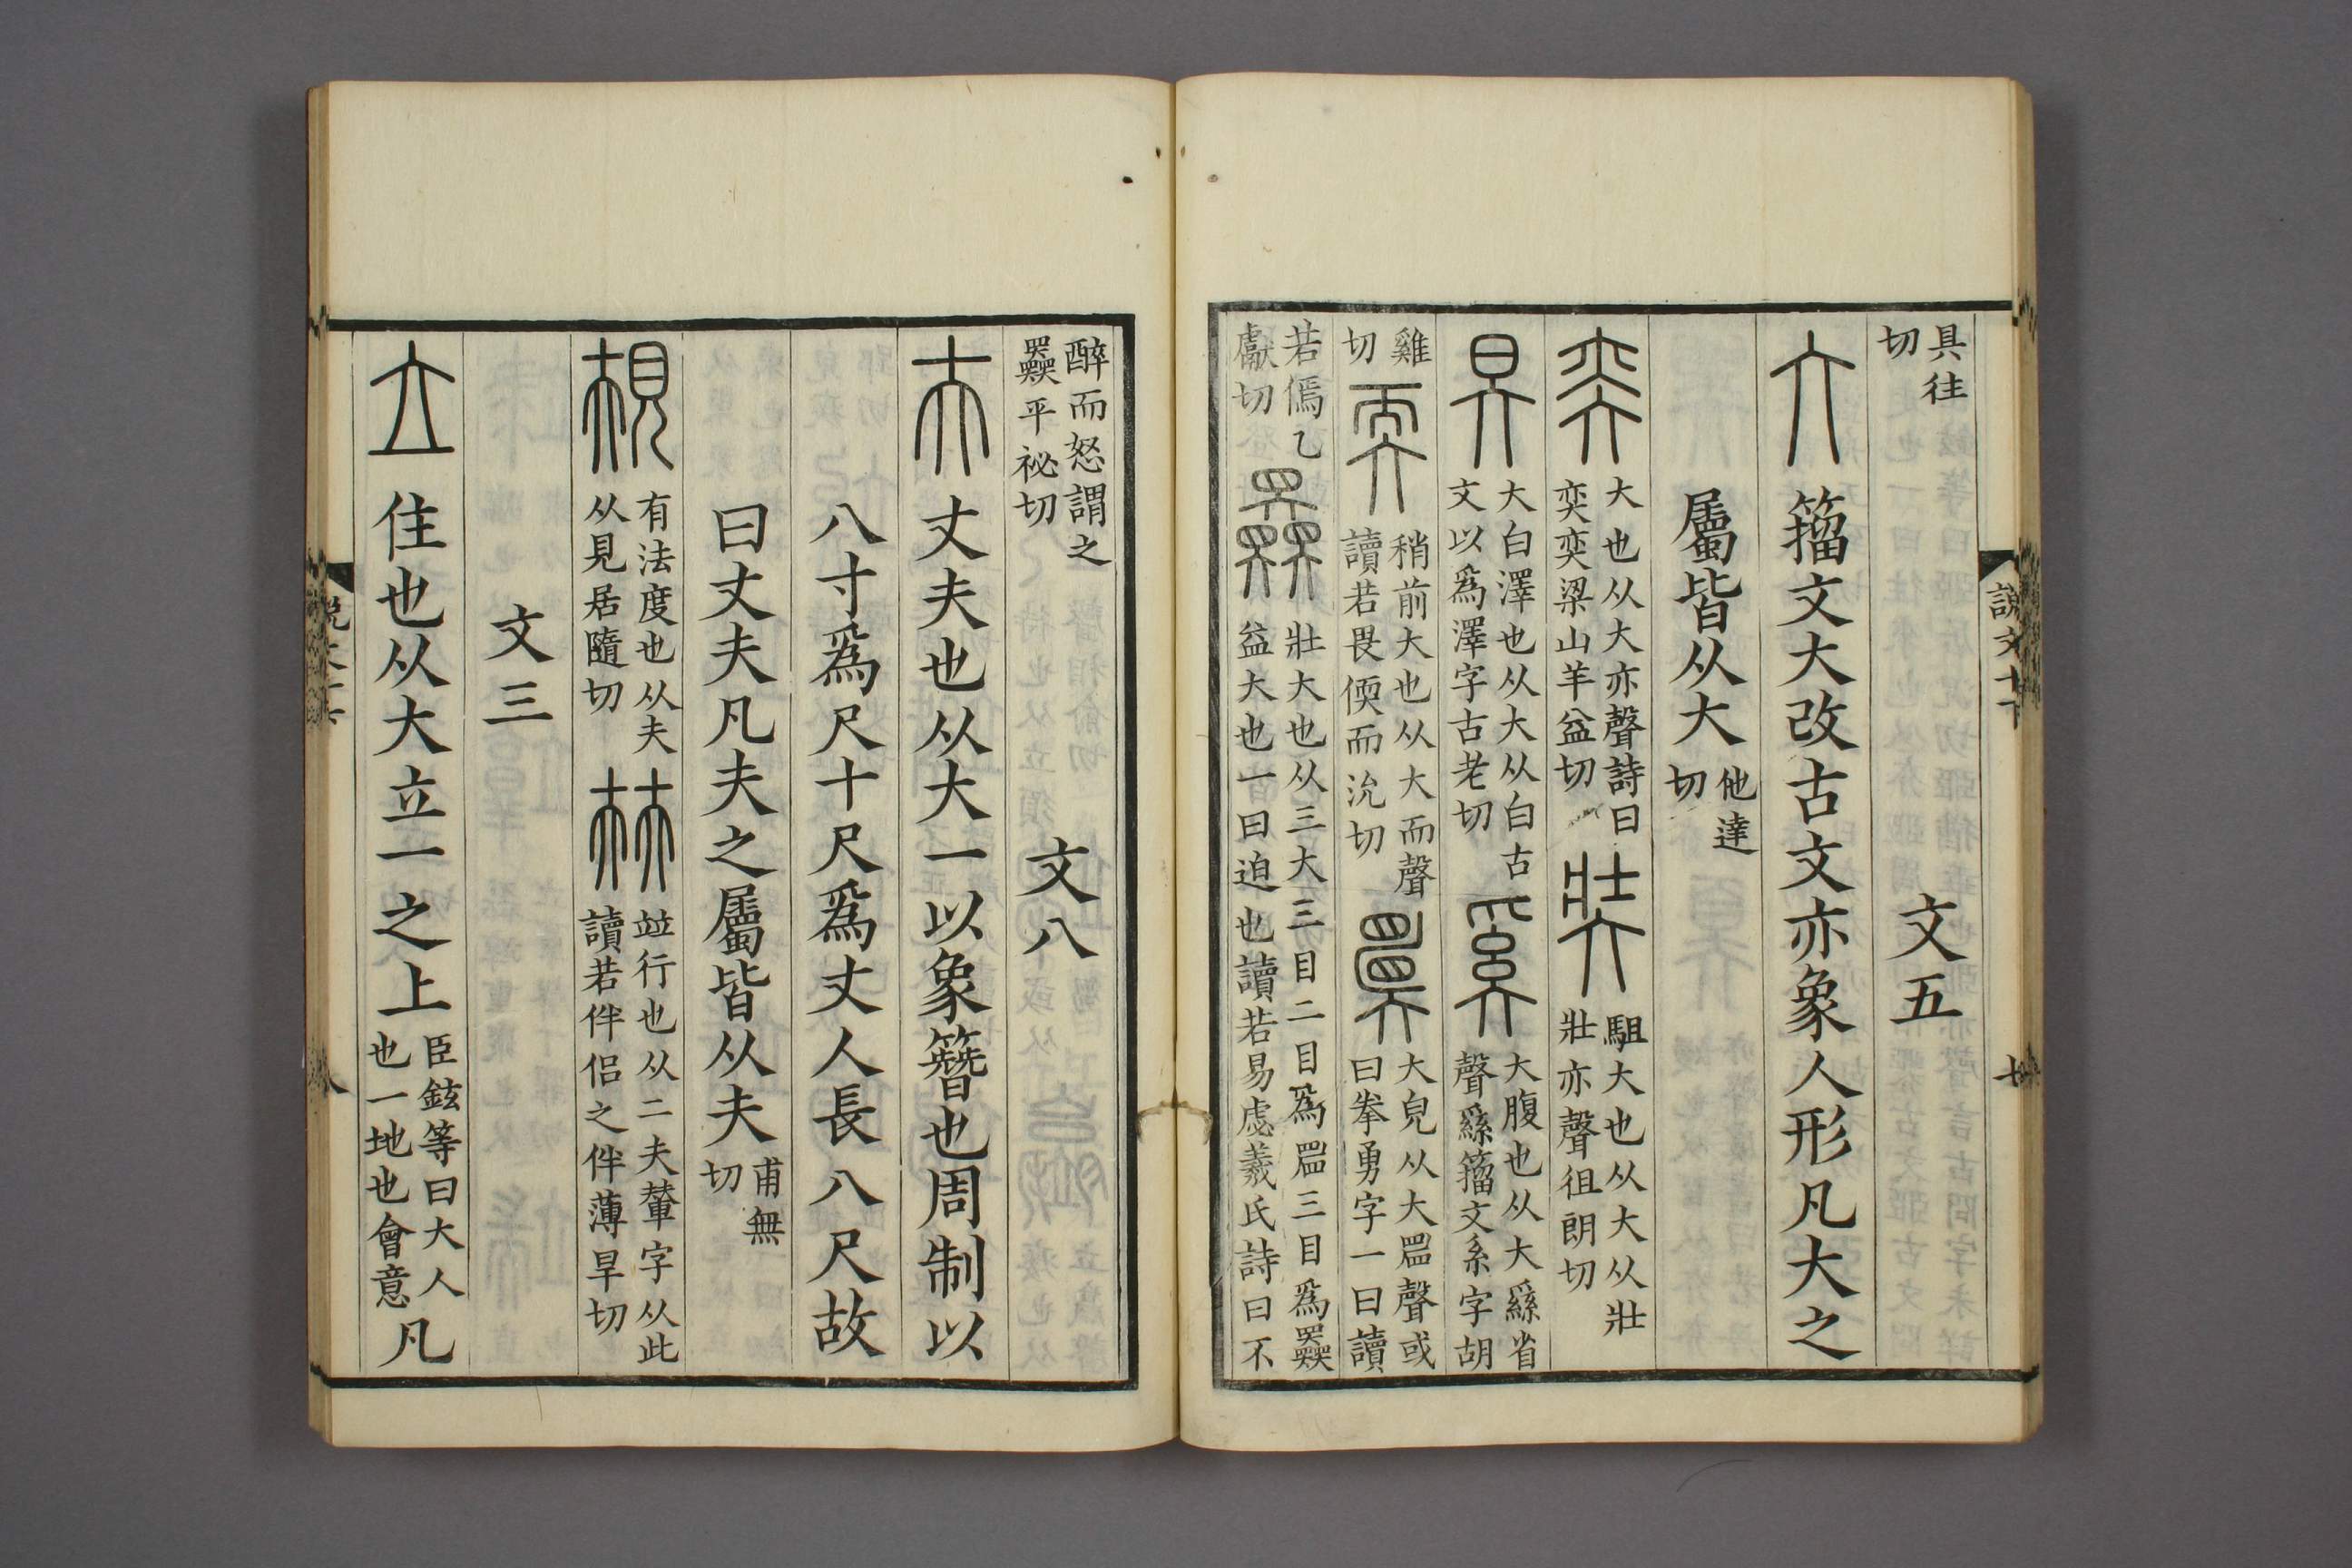 具往切 文五
大 籀文大改古文亦象人形凡大之
屬皆从大他達切
奕 大也从大亦聲詩曰奕奕梁山羊益切 奘 駔大也从大从壯壯亦聲徂朗切
大白澤也从大从白古文以爲澤字古老切 奚 大腹也从大𦃟省聲𦃟籀文系字胡
雞切 耎 稍前大也从大而聲讀若畏偄而沇切 𡚤 大皃从大𥄎聲或曰拳勇字一曰讀
若傿乙獻切 奰 壯大也从三大三目二目爲𥄎三目爲奰益大也一曰迫也讀若易虙羲氏詩曰不
醉而怒謂之奰平祕切 文八
夫 丈夫也从大一以象簪也周制以
八寸爲尺十尺爲丈人長八尺故
曰丈夫凡夫之屬皆从夫甫無切
規 有法度也从夫从見居隨切 㚘 竝行也从二夫輦字从此讀若伴侶之伴薄旱切
文三
立 住也从大立一之上臣鉉等曰大人也一地也會意凡
說文十下